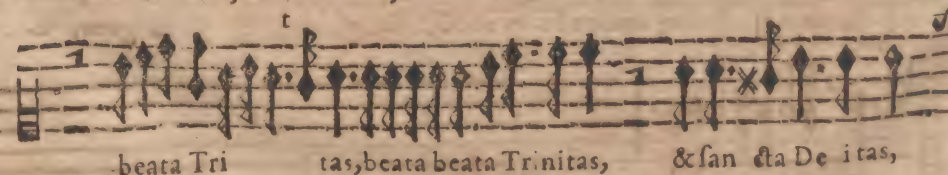 t
beata Tri tas, beata beata Trinitas, & ſan cta De i tas,